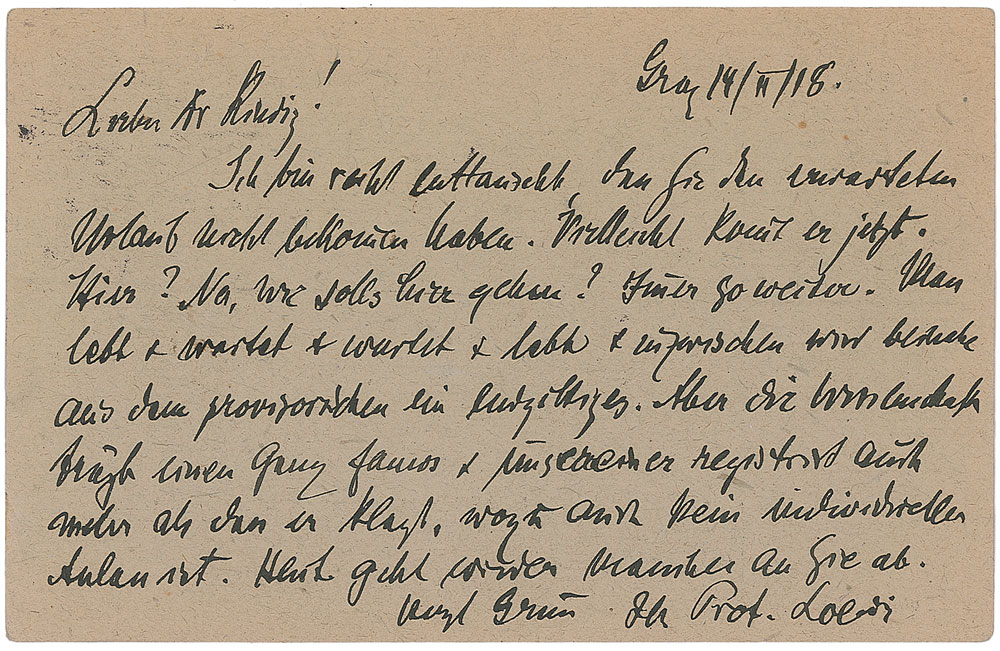 Graz 14/II/18.
Lieber Dr
Ich bin recht enttäuscht, dass Sie den erwarteten
Urlaub nicht bekommen haben. Vielleicht komt er jetzt.
Hier? No, wie solls hier gehen? Imer so weiter. Man
lebt & wartet & wartet & lebt & inzwischen wird beinahe
aus dem provisorischen ein endgiltiges. Aber die Wissenschaft
trägt einen ganz famos & unsereiner registrirt auch
mehr als dass er klagt, wozu auch kein individueller
Anlass ist. Heute geht wieder an Sie ab.
Herzl Gruss Ihr Prof. Loewi